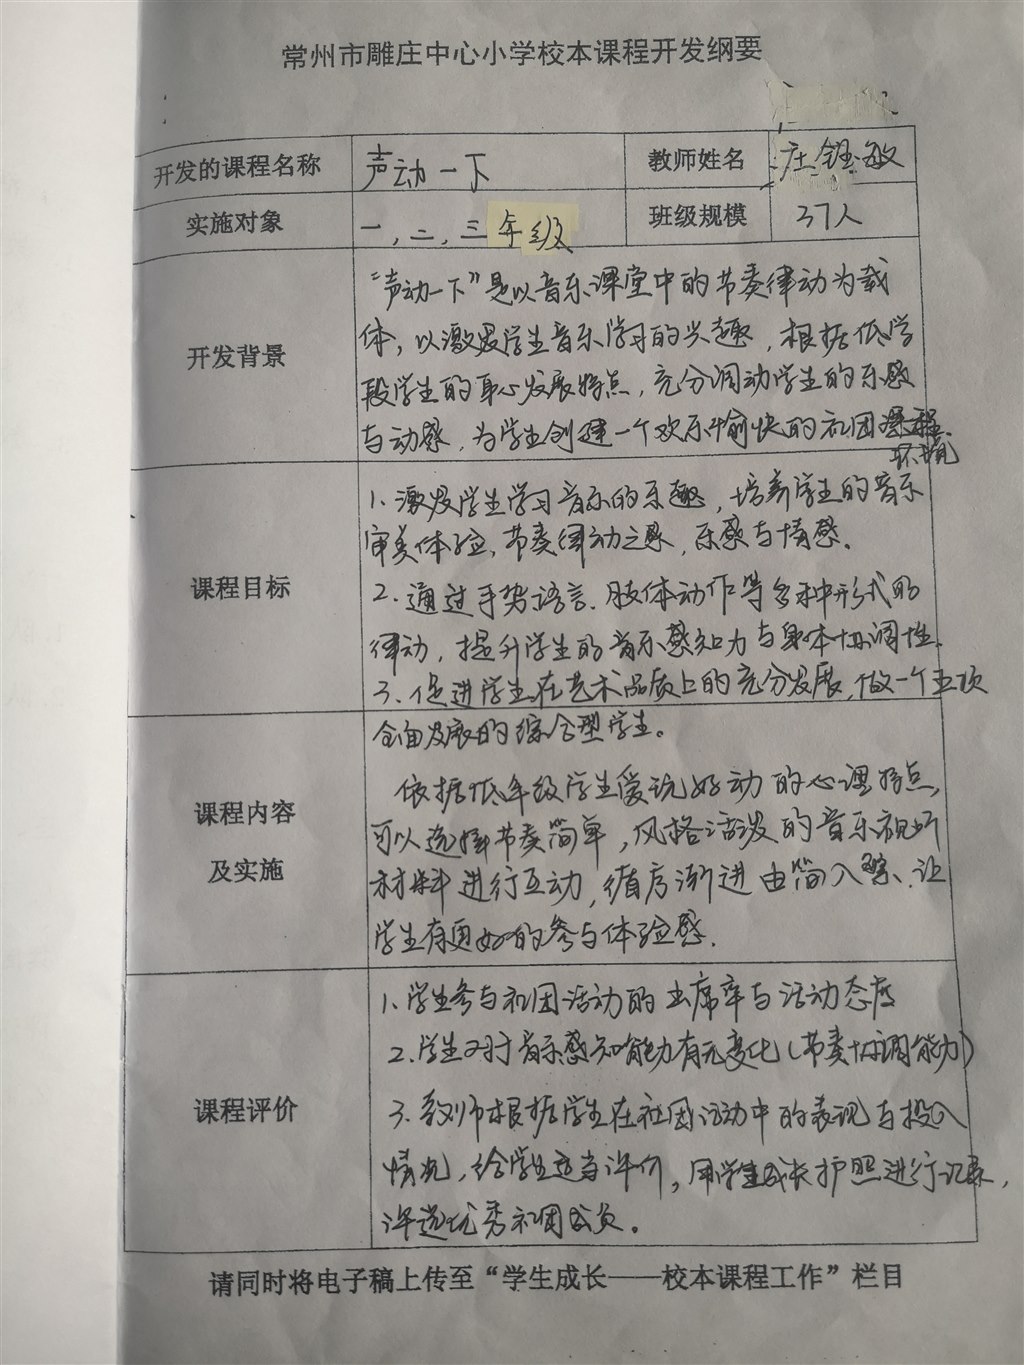 常州市雕庄中心小学校本课程开发纲要
开发的课程名称 声动一下 教师姓名 庄钰敏
实施对象 一,二,三年级 班级规模 37人
开发背景
“声动一下”是以音乐课堂中的节奏律动为载
体，以激发学生音乐学习的兴趣，根据低学
段学生的身心发展特点，充分调动学生的乐感
与动感，为学生创建一个欢乐愉快的社团课程.
环境
课程目标
1.激发学生学习音乐的乐趣，培养学生的音乐
审美体验，节奏律动之感，乐感与情感。
2.通过手势语言、肢体动作等多种形式的
律动，提升学生的音乐感知力与身体协调性.
3.促进学生在艺术品质上的充分发展，做一个五项
全面发展的综合型学生。
课程内容
及实施
依据低年级学生爱玩好动的心理特点，
可以选择节奏简单，风格活泼的音乐视听
材料进行互动，循序渐进由简入繁，让
学生有更好的参与体验感.
课程评价
1.学生参与社团活动的出席率与活动态度
2.学生对于音乐感知能力有无变化(节奏协调能力)
3.教师根据学生在社团活动中的表现与投入
情况，给学生适当评价，用学生成长护照进行记录，
评选优秀社团成员。
请同时将电子稿上传至“学生成长——校本课程工作”栏目